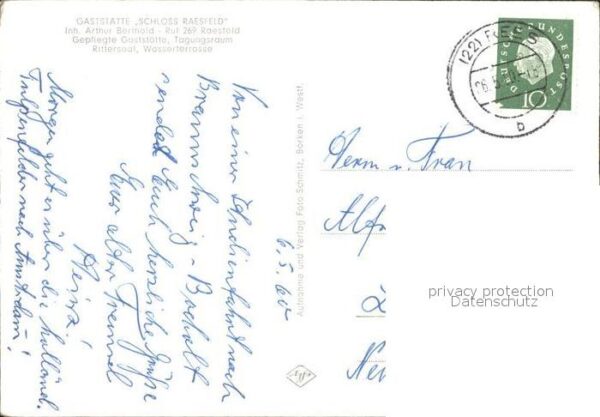 GASTSTÄTTE „SCHLOSS RAESFELD"
Inh. Arthur Bermold - Ruf 269 Raesfeld
Gepflegte Gaststätte, Tagungsraum
Rittersaal, Wasserterrasse
6.5.60
Von einer Studienfahrt nach
Braunschweig - Bocholt
sendet Euch herzliche Grüße
Euer alter Freund
Heinz!
Morgen geht es über die holländ.
Tulpenfelder nach Amsterdam!
Aufnahme und Verlag Foto Schmitz, Borken i. Westf.
Agfa
DEUTSCHE BUNDESPOST
10
(22) REES
b
Herrn u. Frau
Alf
Neu
privacy protection
Datenschutz